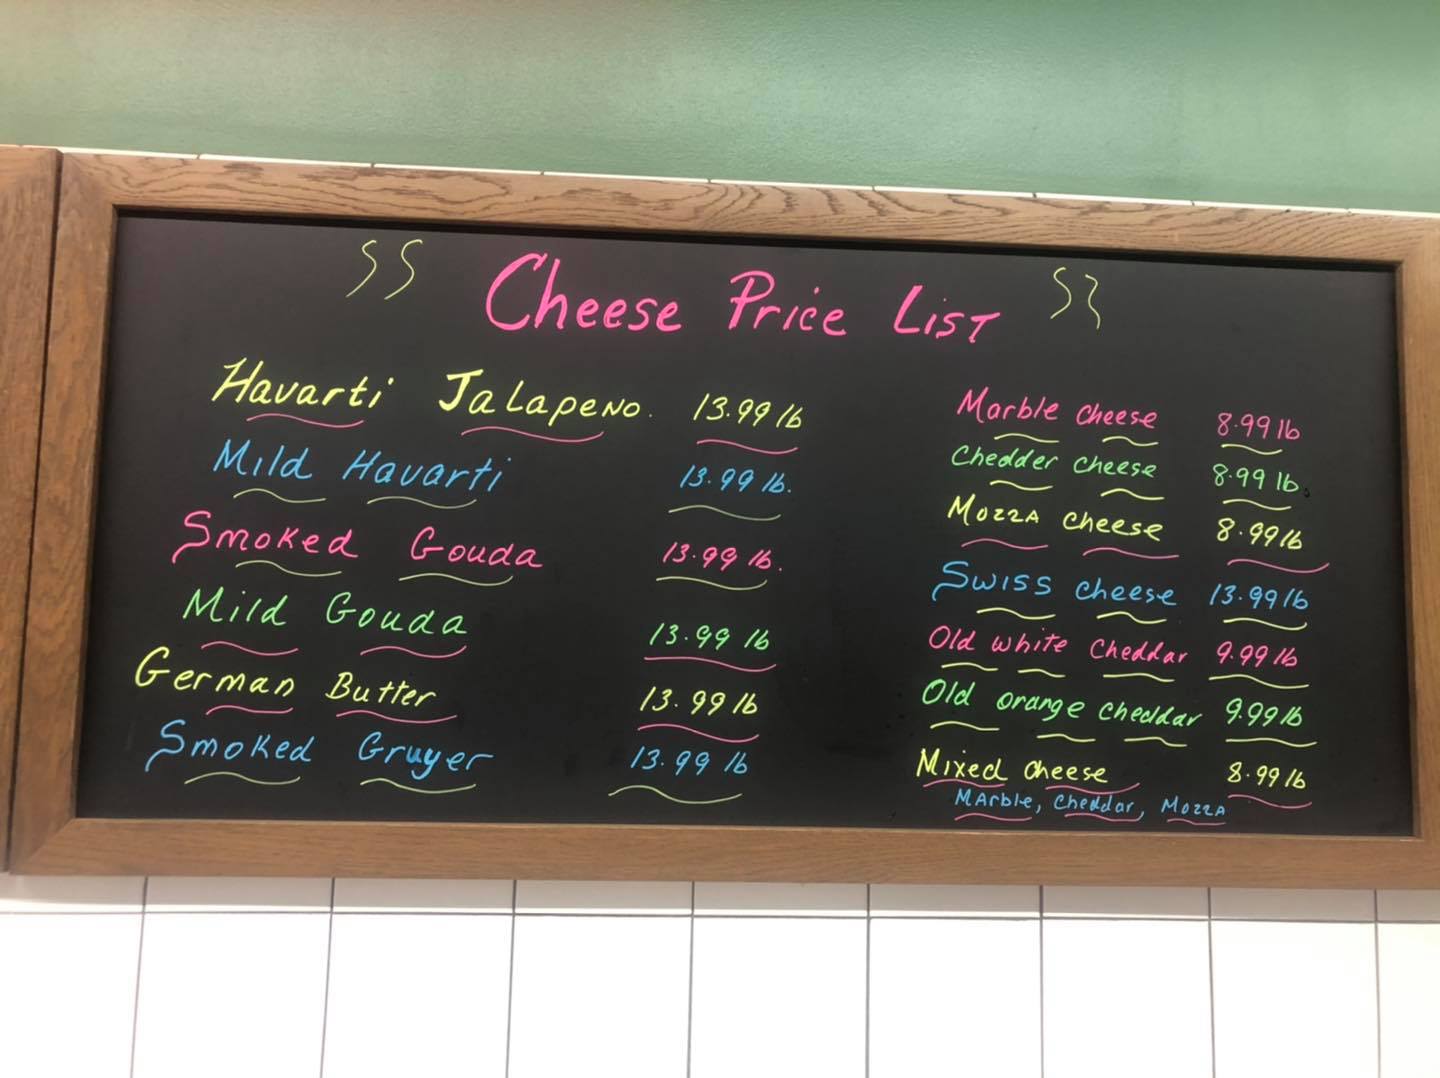 Cheese Price List
Havarti Jalapeno. 13.99 lb
Mild Havarti 13.99 lb.
Smoked Gouda 13.99 lb.
Mild Gouda 13.99 lb
German Butter 13.99 lb
Smoked Gruyer 13.99 lb
Marble cheese 8.99 lb
Chedder cheese 8.99 lb.
Mozza cheese 8.99 lb
Swiss cheese 13.99 lb
Old white cheddar 9.99 lb
Old orange cheddar 9.99 lb
Mixed cheese 8.99 lb
Marble, cheddar, Mozza